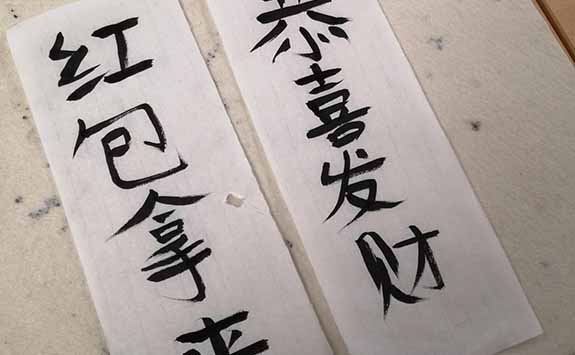 恭喜发财
红包拿来